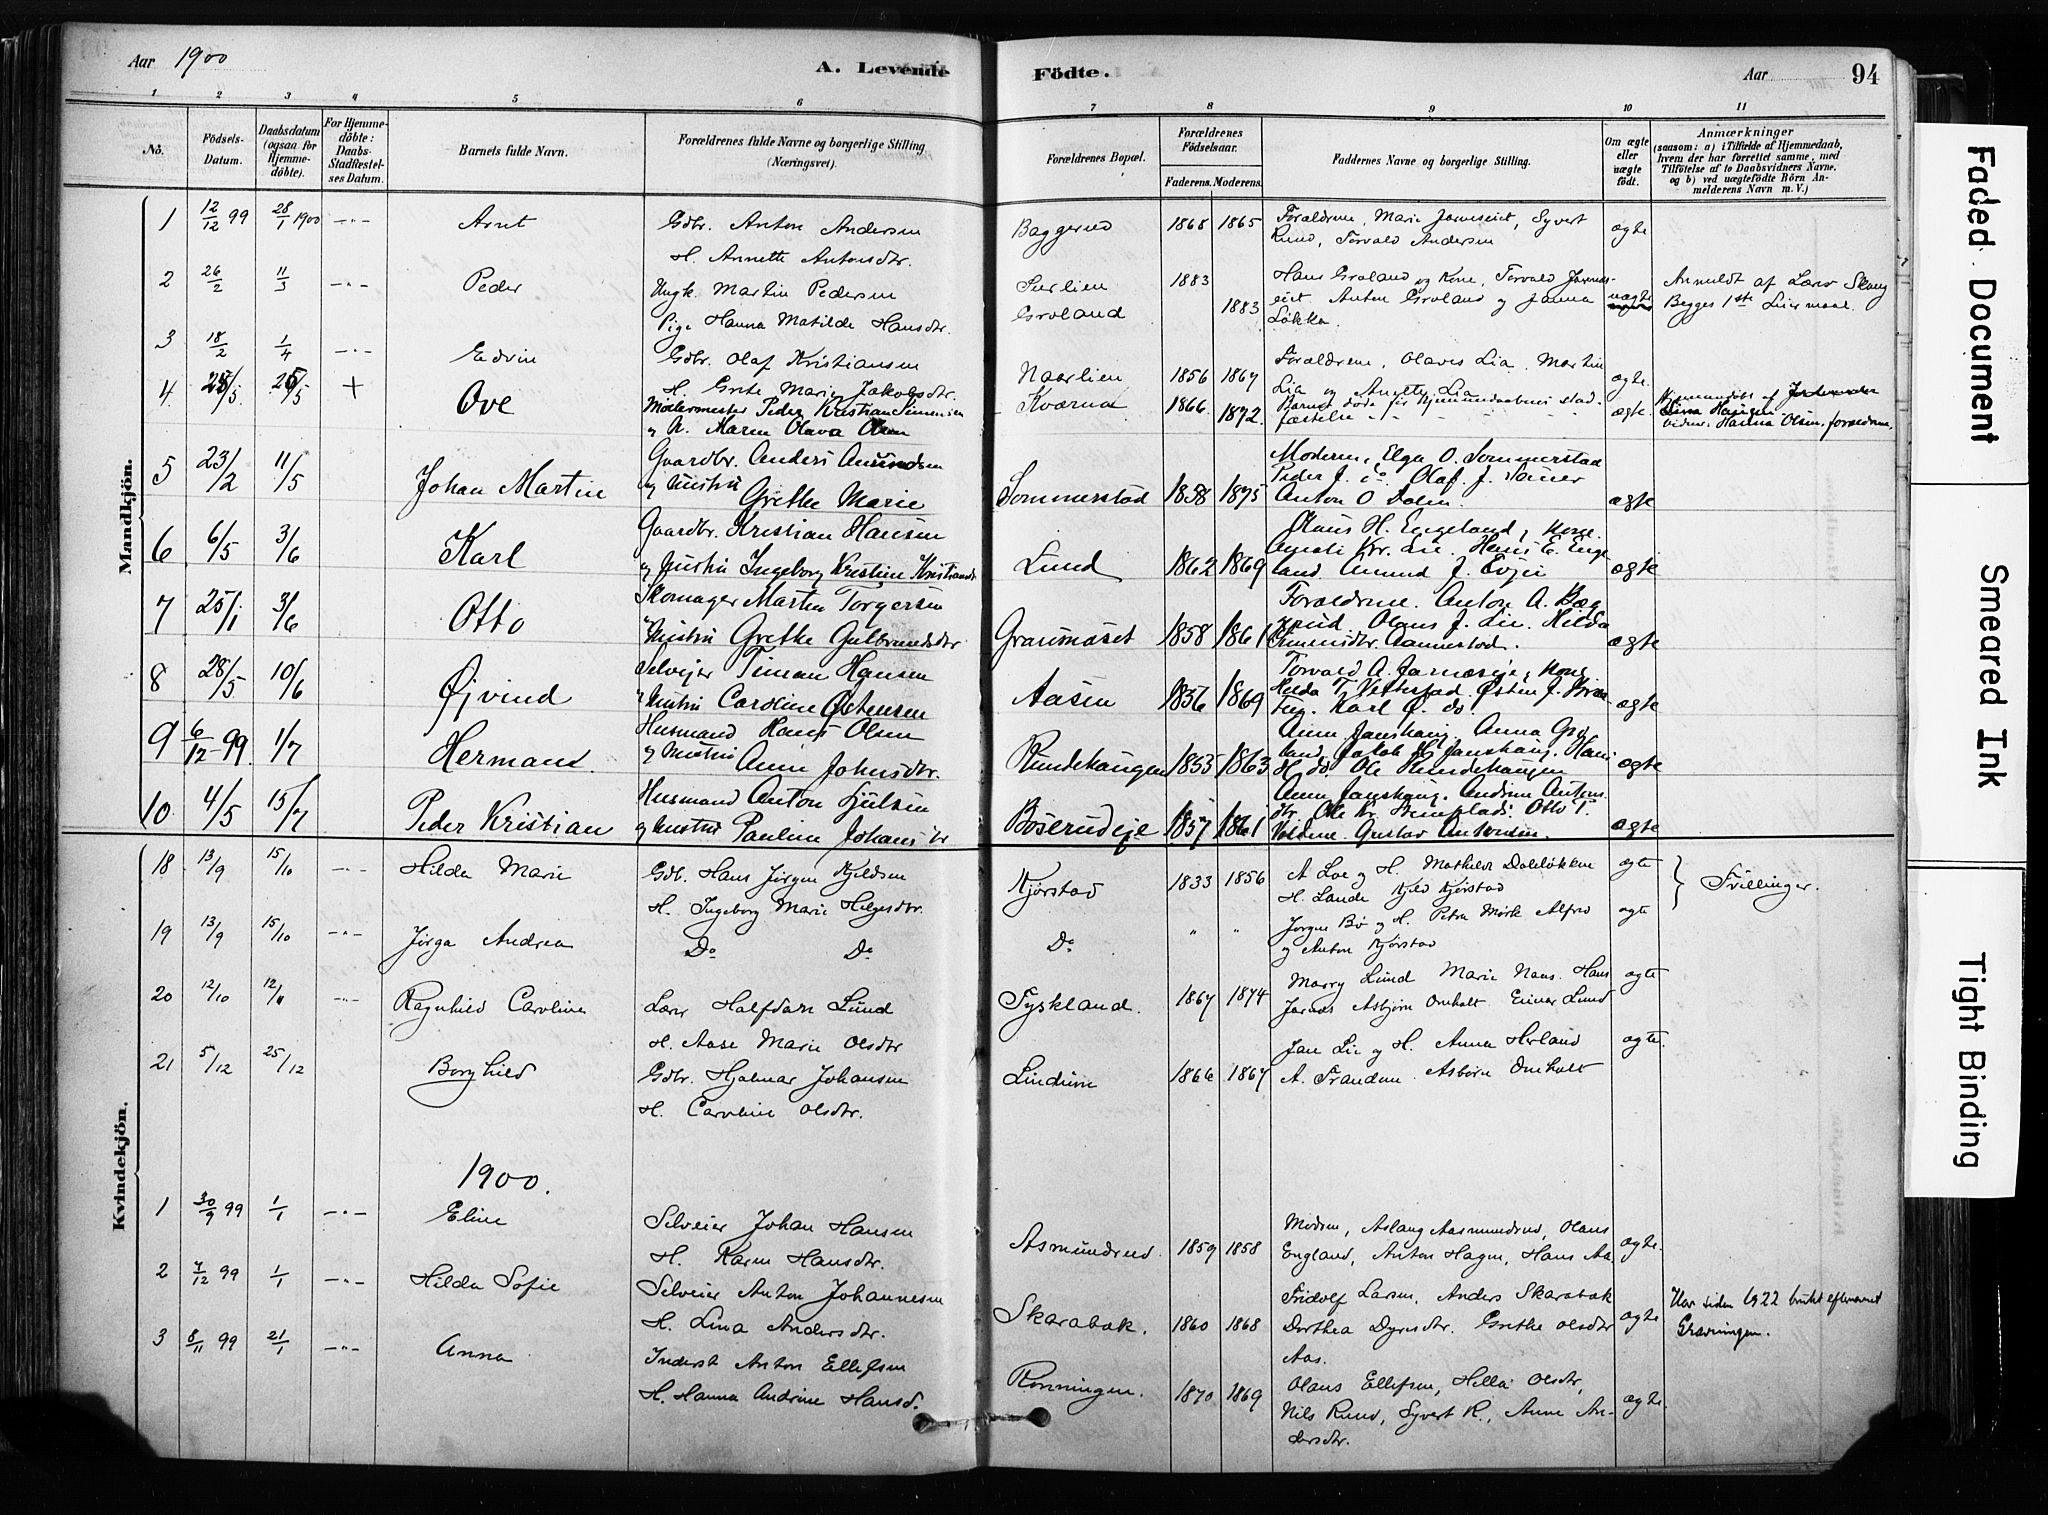 Aar 1900
A. Levende Födte.
Aar 94
1 2 3 4 5 6 7 8 9 10 11
No.
Födsels-Datum.
Daabsdatum (ogsaa for Hjemmedöbte).
For Hjemmedöbte: Daabs-Stadfæstelses Datum.
Barnets fulde Navn.
Forældrenes fulde Navne og borgerlige Stilling (Næringsvei).
Forældrenes Bopæl.
Forældrenes Födselsaar.
Faderens. Moderens.
Faddernes Navne og borgerlige Stilling.
Om ægte eller uægte födt.
Anmærkninger
(saasom: a) i Tilfælde af Hjemmedaab, hvem der har forrettet samme, med Tilföielse af to Daabsvidners Navne, og b) ved uægtefödte Börn Anmelderens Navn m. V.)
Mandkjön.
1 12/12 99 28/1 1900 -"- Arnt Gdbr. Anton Andersen
H. Annette Antonsdtr. Baggerud 1868 1865 Forældrene, Marie Jarnseiet, Syvert
Rund, Torvald Andersen ægte
2 26/2 11/3 -"- Peder Ungk. Martin Pedersen
Pige Hanna Matilde Hansdtr. Surlien
Groland 1883
1883 Hans Groland og Kone, Torvald Jarnseiet, Anton Groland og Janna
Løkka. uægte Anmeldt af Lars Skaug
Begges 1ste Leiermaal.
3 18/2 1/4 -"- Edvin Gdbr. Olaf Kristiansen
H. Grete Marie Jakobsdtr. Naarlien 1856 1867 Forældrene, Olaves Lia, Martin
Lia og Anette Lia ægte
4 25/5 25/5 + Ove Møllermester Peder Kristian
og H. Maren Olava Olsen Kværna 1866. 1872. Barnet døde før Hjemmedaabens stadfæstelse ægte Hjemmedøbt af
Lina Haugen
vidner: Hanna Olsen, forældrene.
5 23/2 11/5 Johan Martin Gaardbr. Anders Amundsen
og Hustru Grethe Marie Sommerstad 1858 1875 Moderen, Elga O. Sommerstad
Peder J. do. Olaf J.
Anton O Dalen ægte
6 6/5 3/6 Karl Gaardbr. Kristian Hansen
og Hustru Ingeborg Kristine Kristiansdtr Lund 1862 1869 Klaus H. Engeland, Kone
Kr. Lie. Hans E. Engeland. Amund J. Evju ægte
7 25/1 3/6 Otto Skomager Martin Torgersen
Hustru Grethe Gulbrandsdtr Granmoset 1858 1861 Forældrene. Anton A. Bæg
rud. Olaus J. Lie. Hilda
ægte
8 28/5 10/6 Øjvind Selvejer Timan Hansen
Hustru Caroline Østensen Aasen 1856 1869 Torvald A. Jarnæseje, Kone
Hilda T. Vetterstad. Østen J.
Karl Ø. do. ægte
9 6/12-99 1/7 Hermand. Husmand Hans Olsen
og Hustru Anne Johnsdtr. Rundehaugen 1853 1863 Anne Janshaug, Anna Gro
land, Jakob H. Janshaug. Hans
H do. Ole Rundehaugen ægte
10 4/5 15/7 Peder Kristian Husmand Anton Julsen
og Hustru Pauline Johansdtr Böserudeje 1857 1861 Anne Janshaug. Andrine Antons
dtr. Ole Kr. Otto T.
Gustav Antonsen. ægte
Kvindekjön.
18 13/9 15/10 -"- Hilda Marie Gdb. Hans Jörgen Kjeldsen
H. Ingeborg Marie Helgesdtr. Kjørstad 1833 1856 A Loe og H. Mathilde Dalsløkken
H. Lande Kjeld Kjørstad ægte } Tvillinger.
19 13/9 15/10 -"- Jörga Andrea Do Do Do " " Jørgen Bø og H. Petra Mørk Alfred
og Anton Kjørstad ægte
20 12/10 12/11 -"- Ragnhild Caroline Lærer Halfdan Lund
H. Aase Marie Olsdtr Fyskland. 1867 1874 Marry Lund Marie Næss. Hans
Asbjørn Omholt. Einar Lund ægte
21 5/12 25/12 Borghild Gdbr. Hjalmar Johansen
H. Caroline Olsdtr. Lindum 1866 1867 Jan Lie og H. Anna Herland
A. Frandum Asbørn Omholt ægte.
1900.
1 30/9 99 1/1 -"- Eline Selveier Johan Hansen
H. Karen Hansdtr. Asmundrud. 1859 1858 Modren, Aslaug Aasmundrud, Olaus
England, Anton Hagen, Hans Aa. ægte.
2 7/12 99 1/1 -"- Hilda Sofie Selveier Anton Johannesen
H. Lina Andersdtr. Skarabak. 1860 1868 Fridolf Larsen, Anders Skarabak
Dorthea Dyresdtr. Grethe Olsdtr
Aas. ægte Har siden 1922 brukt efternavnet
Grønningen.
3 8/11 99 21/1 -"- Anna Inderst Anton Ellefsen
H. Hanna Andrine Hansd. Rønningen. 1870 1869 Olaus Ellefsen, Hella Olsdtr,
Nils Rund, Syvert R., Anne An-
dersdtr. ægte.
Faded Document
Smeared Ink
Tight Binding